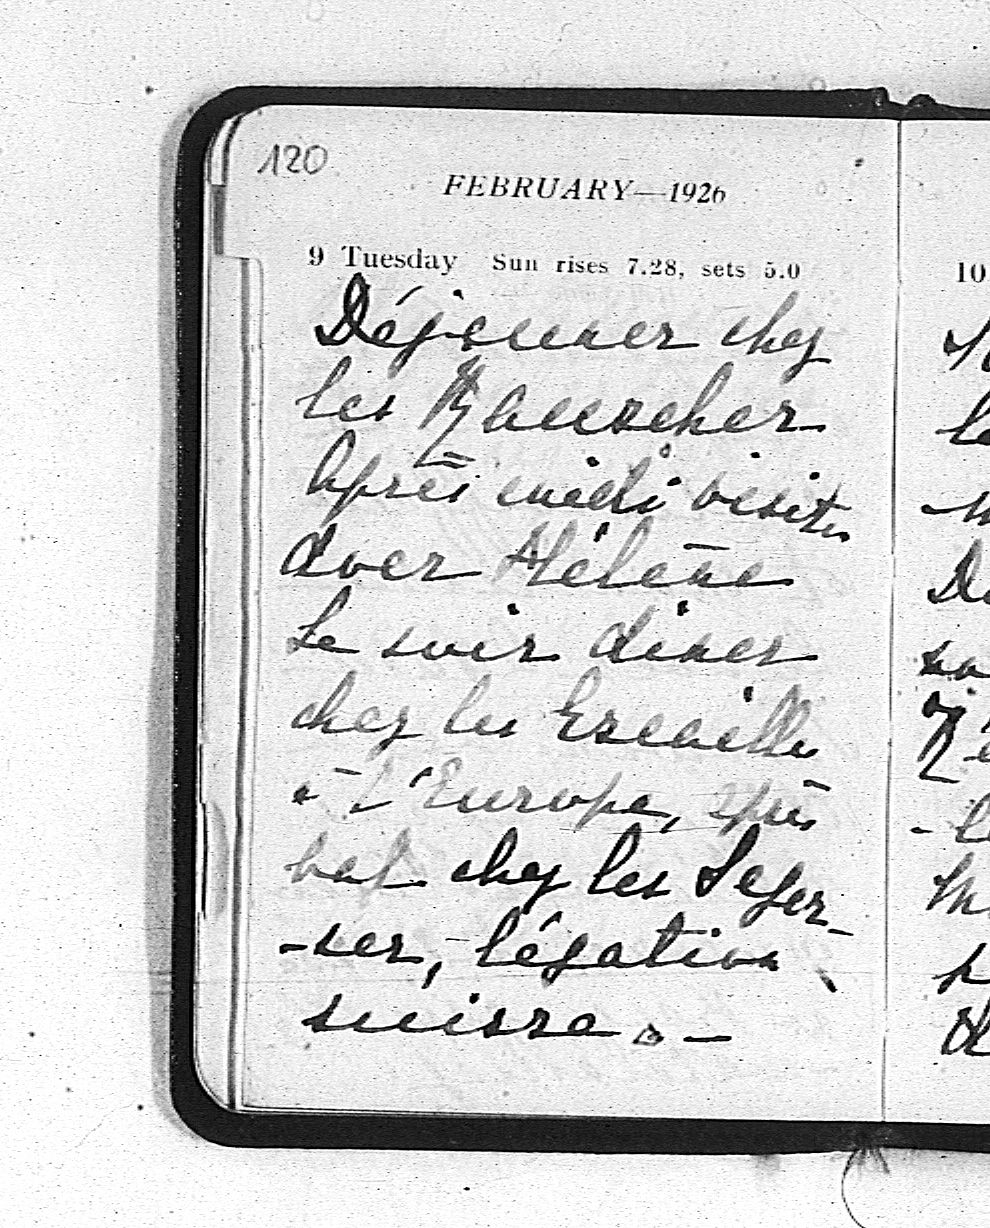 120
FEBRUARY—1926
9 Tuesday Sun rises 7.28, sets 5.0
Déjeuner chez
les Rauscher
Après midi visites
avec Hélène
Le soir diner
chez les
à l'Europe, après
bal chez les Seger-
-ser, légation
suisse. —
10